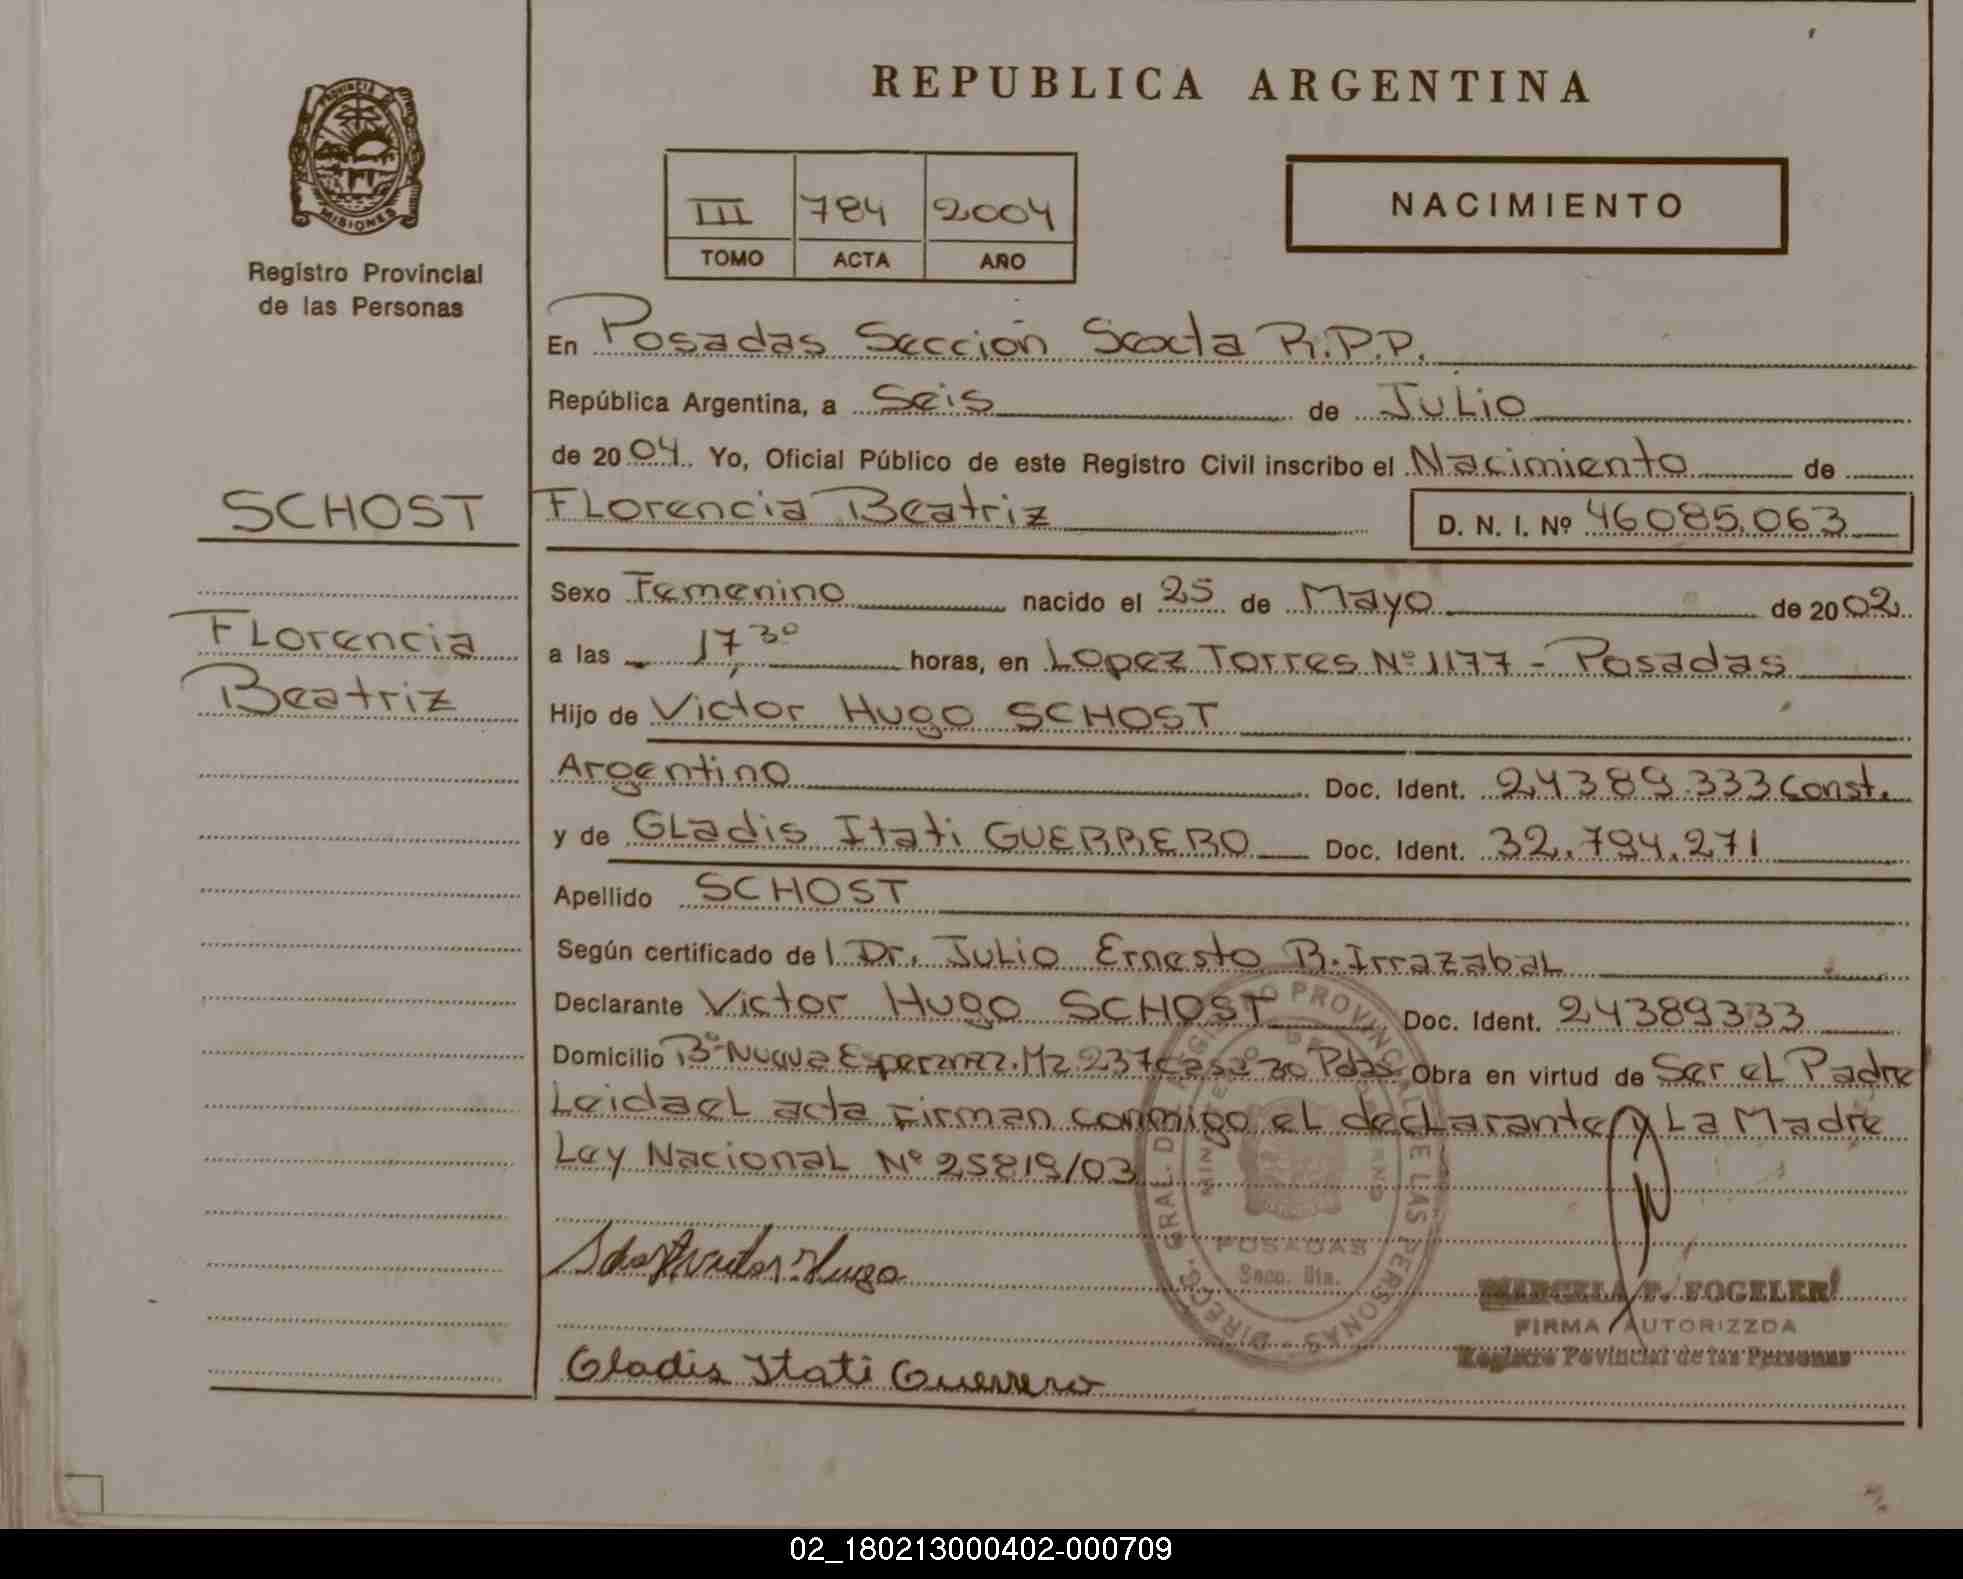 REPUBLICA ARGENTINA
PROVINCIA DE
MISIONES
Registro Provincial
de las Personas
III 784 2004
TOMO ACTA AÑO
NACIMIENTO
En Posadas Sección Sexta R.P.P.
República Argentina, a Seis de Julio
de 2004. Yo, Oficial Público de este Registro Civil inscribo el Nacimiento de
SCHOST
Florencia Beatriz D. N. I. Nº 46085.063
Sexo Femenino nacido el 25 de Mayo de 2002
Florencia
Beatriz
a las 17,30 horas, en Lopez Torres Nº 1177 - Posadas
Hijo de Victor Hugo SCHOST
Argentino Doc. Ident. 24389.333 Const.
y de Gladis Itati GUERRERO Doc. Ident. 32.794.271
Apellido SCHOST
Según certificado del Dr. Julio Ernesto R. Irrazabal
Declarante Victor Hugo SCHOST Doc. Ident. 24389333
Domicilio Bº Nueva Esperanza. Mz 237 casa 30 Pdas Obra en virtud de Ser el Padre
Leida el acta Firman conmigo el declarante y La Madre
Ley Nacional Nº 25819/03
DIREC. GRAL. DEL REGISTRO PROVINCIAL DE LAS PERSONAS
POSADAS
Secc. 6ta.
Schost Victor Hugo
MARCELA P. FOGELER
FIRMA AUTORIZZDA
Registro Povincial de las Personas
Gladis Itati Guerrero
02_180213000402-000709